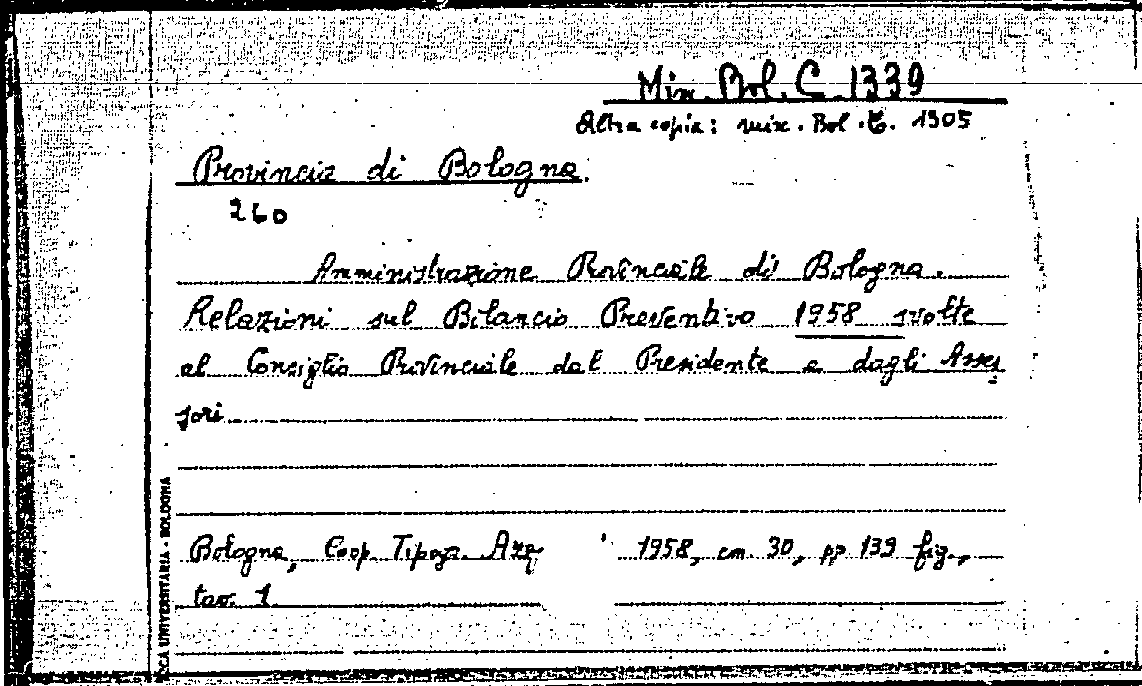 Misc. Bol. C 1339
Altra copia: misc. Bol. C. 1305
Provincia di Bologna.
260
Amministrazione Provinciale di Bologna.
Relazioni sul Bilancio Preventivo 1958 svolte
al Consiglio Provinciale dal Presidente e dagli Asses
sori
Bologna, Coop. Tipogr. 1958, cm. 30, pp 139 fig.,
tav. 1
UNIVERSITARIA - BOLOGNA